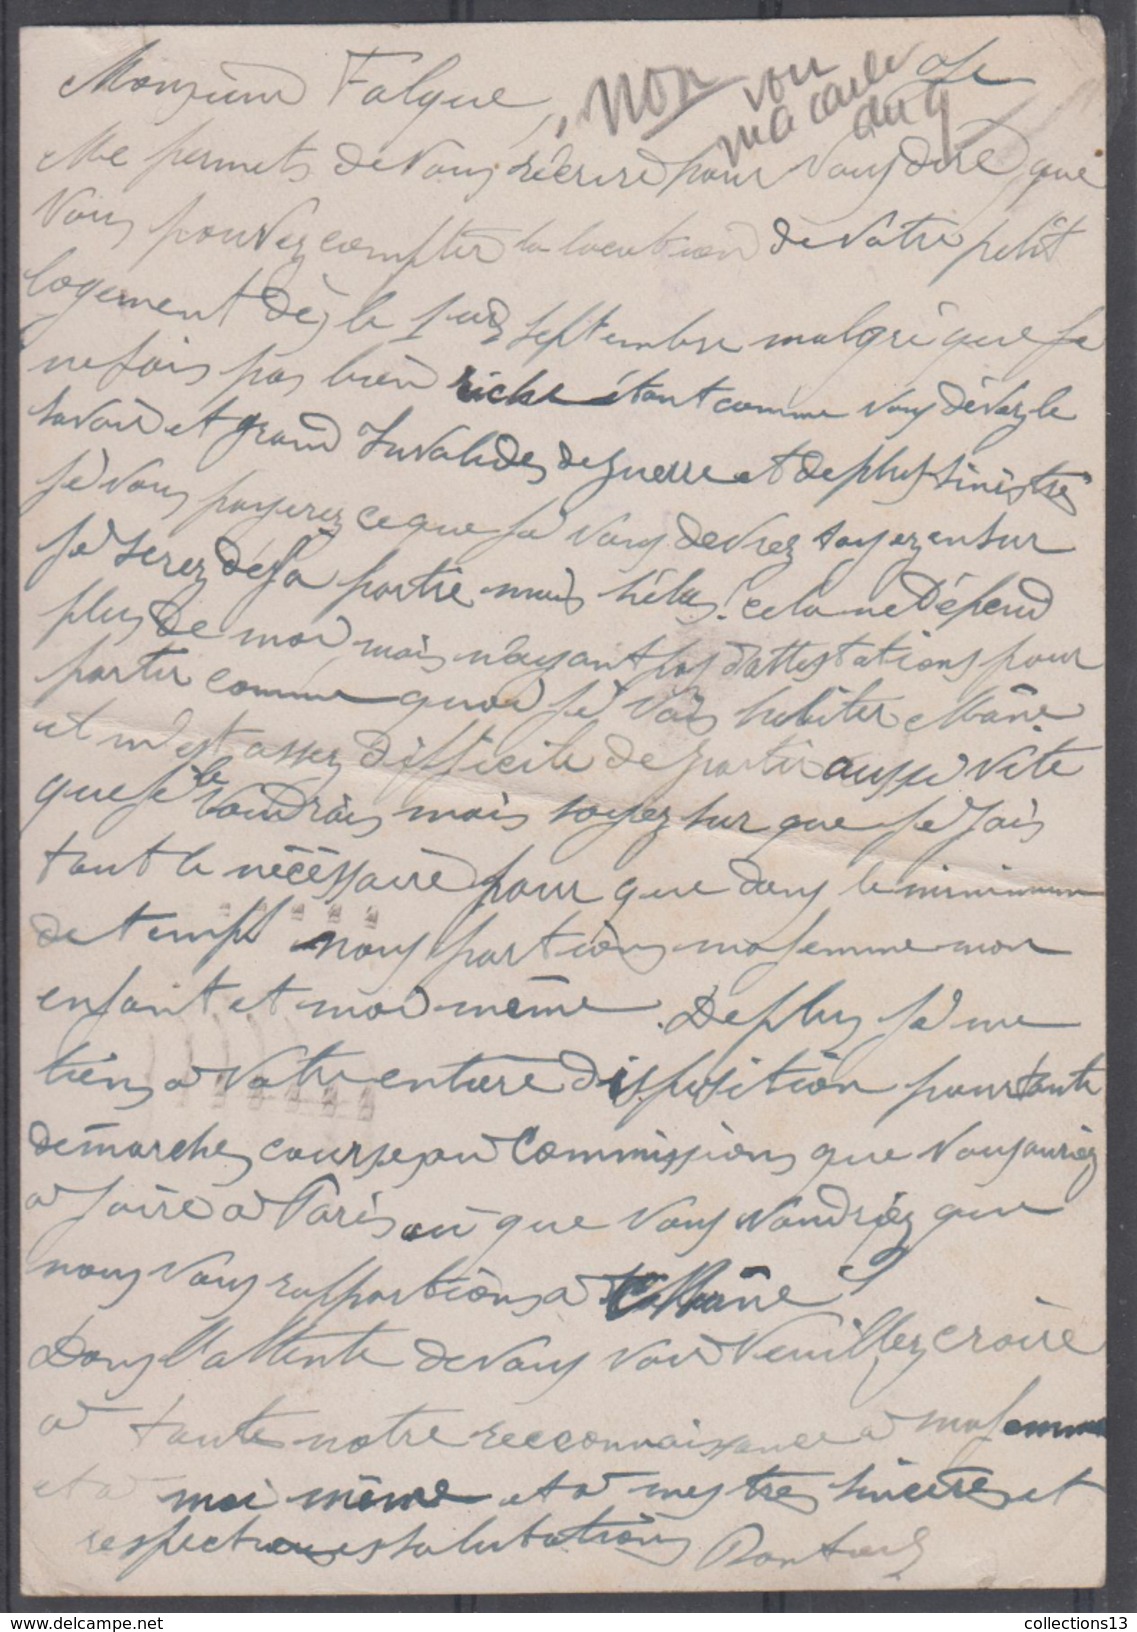 Monsieur Falque, Je
Non voir
ma carte
du 9
Me permets de vous réecrire pour vous dire que
Vous pouvez compter la location de votre petit
logement dès le 1er septembre malgré que je
ne sois pas bien riche étant comme vous dévez le
savoir et grand Invalides de guerre et de plus sinistré
Jè vous payerez ce que Jè vous devrez soyez en sur
Jè serez déja partie mais hélas! cela ne dépend
plus de moi mais n'ayant pas d'attestations pour
partir comme quoi Jè vais habiter Mâne
et m'est assez difficile de partir aussi vite
que Jè le voudrais mais soyez sur que Je fais
tout le nécèssaire pour que dans le minimum
de temps nous partions ma femme mon
enfant et moi même. De plus Jè me
tiens a votre entière disposition pour toute
démarches courses ou Commissions que vous auriez
a faire a Paris ou que vous voudriez que
nous vous rapportions a Mâne
Dans l'attente de vous voir Veuillez croire
a toute notre reconnaissance a ma femme
et a moi même et a mes très sincères et
respectueuses salutations